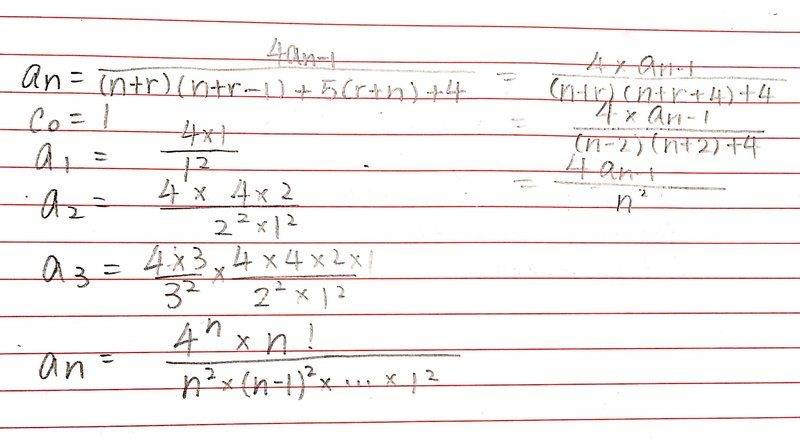 an = 4an-1 / (n+r)(n+r-1)+5(r+n)+4 = 4×an-1 / (n+r)(n+r+4)+4
c0 = 1
= 4×an-1 / (n-2)(n+2)+4
a1 = 4×1 / 1²
= 4an-1 / n²
a2 = 4 × 4×2 / 2²×1²
a3 = 4×3 / 3² × 4×4×2×1 / 2²×1²
an = 4ⁿ × n! / n²×(n-1)²×...×1²